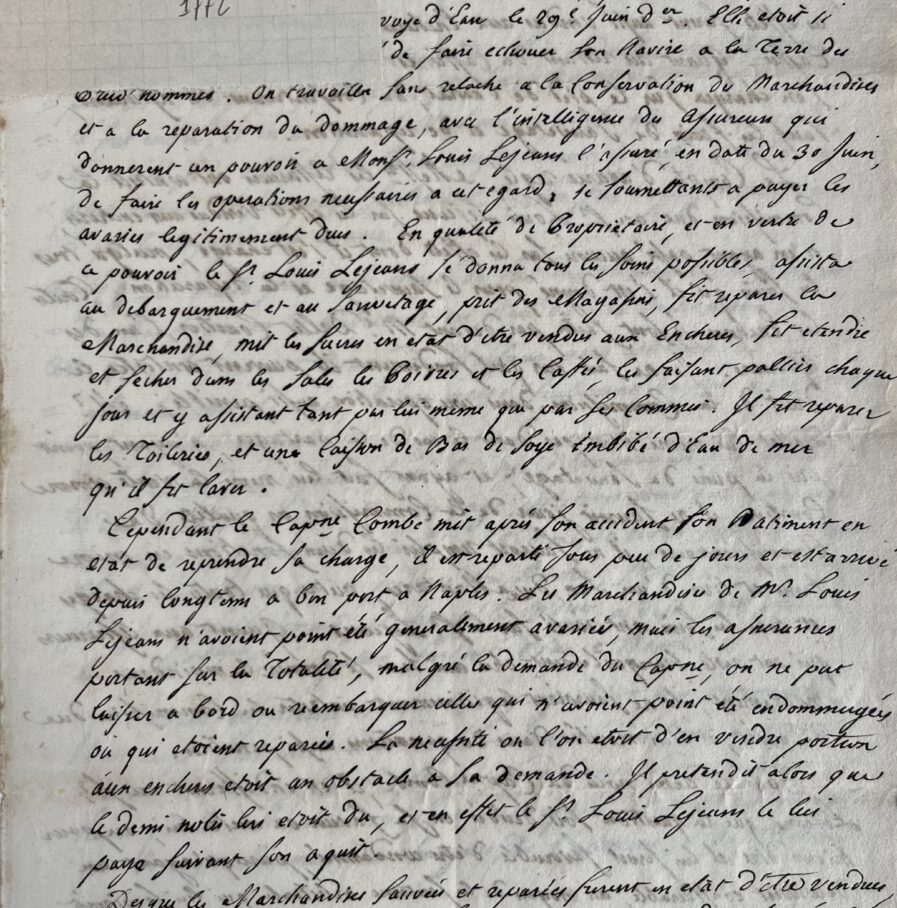 1772
voye d'Eau le 29e Juin der. Elle etoit si
de faire echouer son Navire a la Terre des
nommes. On travailla sans relache a la Conservation des Marchandises
et a la reparation du dommage, avec l'intelligence des assureurs qui
donnerent un pouvoir a Monsr. Louis Lejeans l'assuré en datte du 30 Juin,
de faire les operations necessaires a cet egard, se soumettants a payer les
avaries legitimement dues. En qualité de Proprietaire, et en vertu de
ce pouvoir le Sr. Louis Lejeans se donna tous les soins possibles, assista
au debarquement et au Sauvetage, prit des Magasins, fit reparer la
Marchandise, mit les Sucres en etat d'etre vendus aux Encheres, fit etendre
et secher dans les Sales les Poivres et les Caffés, les faisant pallier chaque
jour et y assistant tant par lui meme que par ses Commis. Il fit reparer
les Toileries, et une Caisson de Bas de Soye Embibé d'Eau de mer
qu'il fit laver.
Cependant le Capne Combe mit aprés son accident son Batiment en
etat de reprendre sa charge, il est reparti sous peu de jours et est arrivé
depuis longtems a bon port a Naples. Les Marchandises de Mr. Louis
Lejeans n'avoient point été generalement avariés, mais les assurances
portant sur la Totalité, malgré la demande du Capne, on ne put
laisser a bord ou rembarquer celles qui n'avoient point été endommagées
ou qui etoient reparées. La necessité ou l'on etoit d'en vendre portion
aux encheres etoit un obstacle a sa demande. Il pretendit alors que
le demi nolis lui etoit du, et en effet le Sr. Louis Lejeans le lui
paya suivant son aquit.
Desque les Marchandises sauvées et reparées furent en etat d'être vendues,